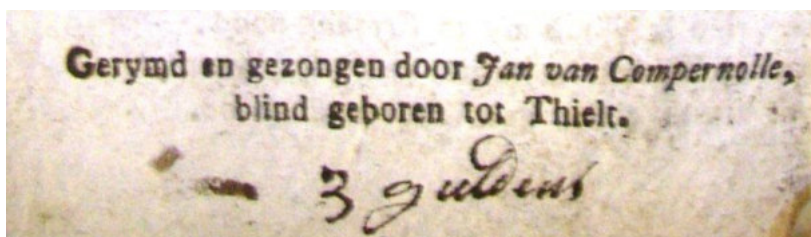 Gerymd en gezongen door Jan van Compernolle,
blind geboren tot Thielt.
3 guldens